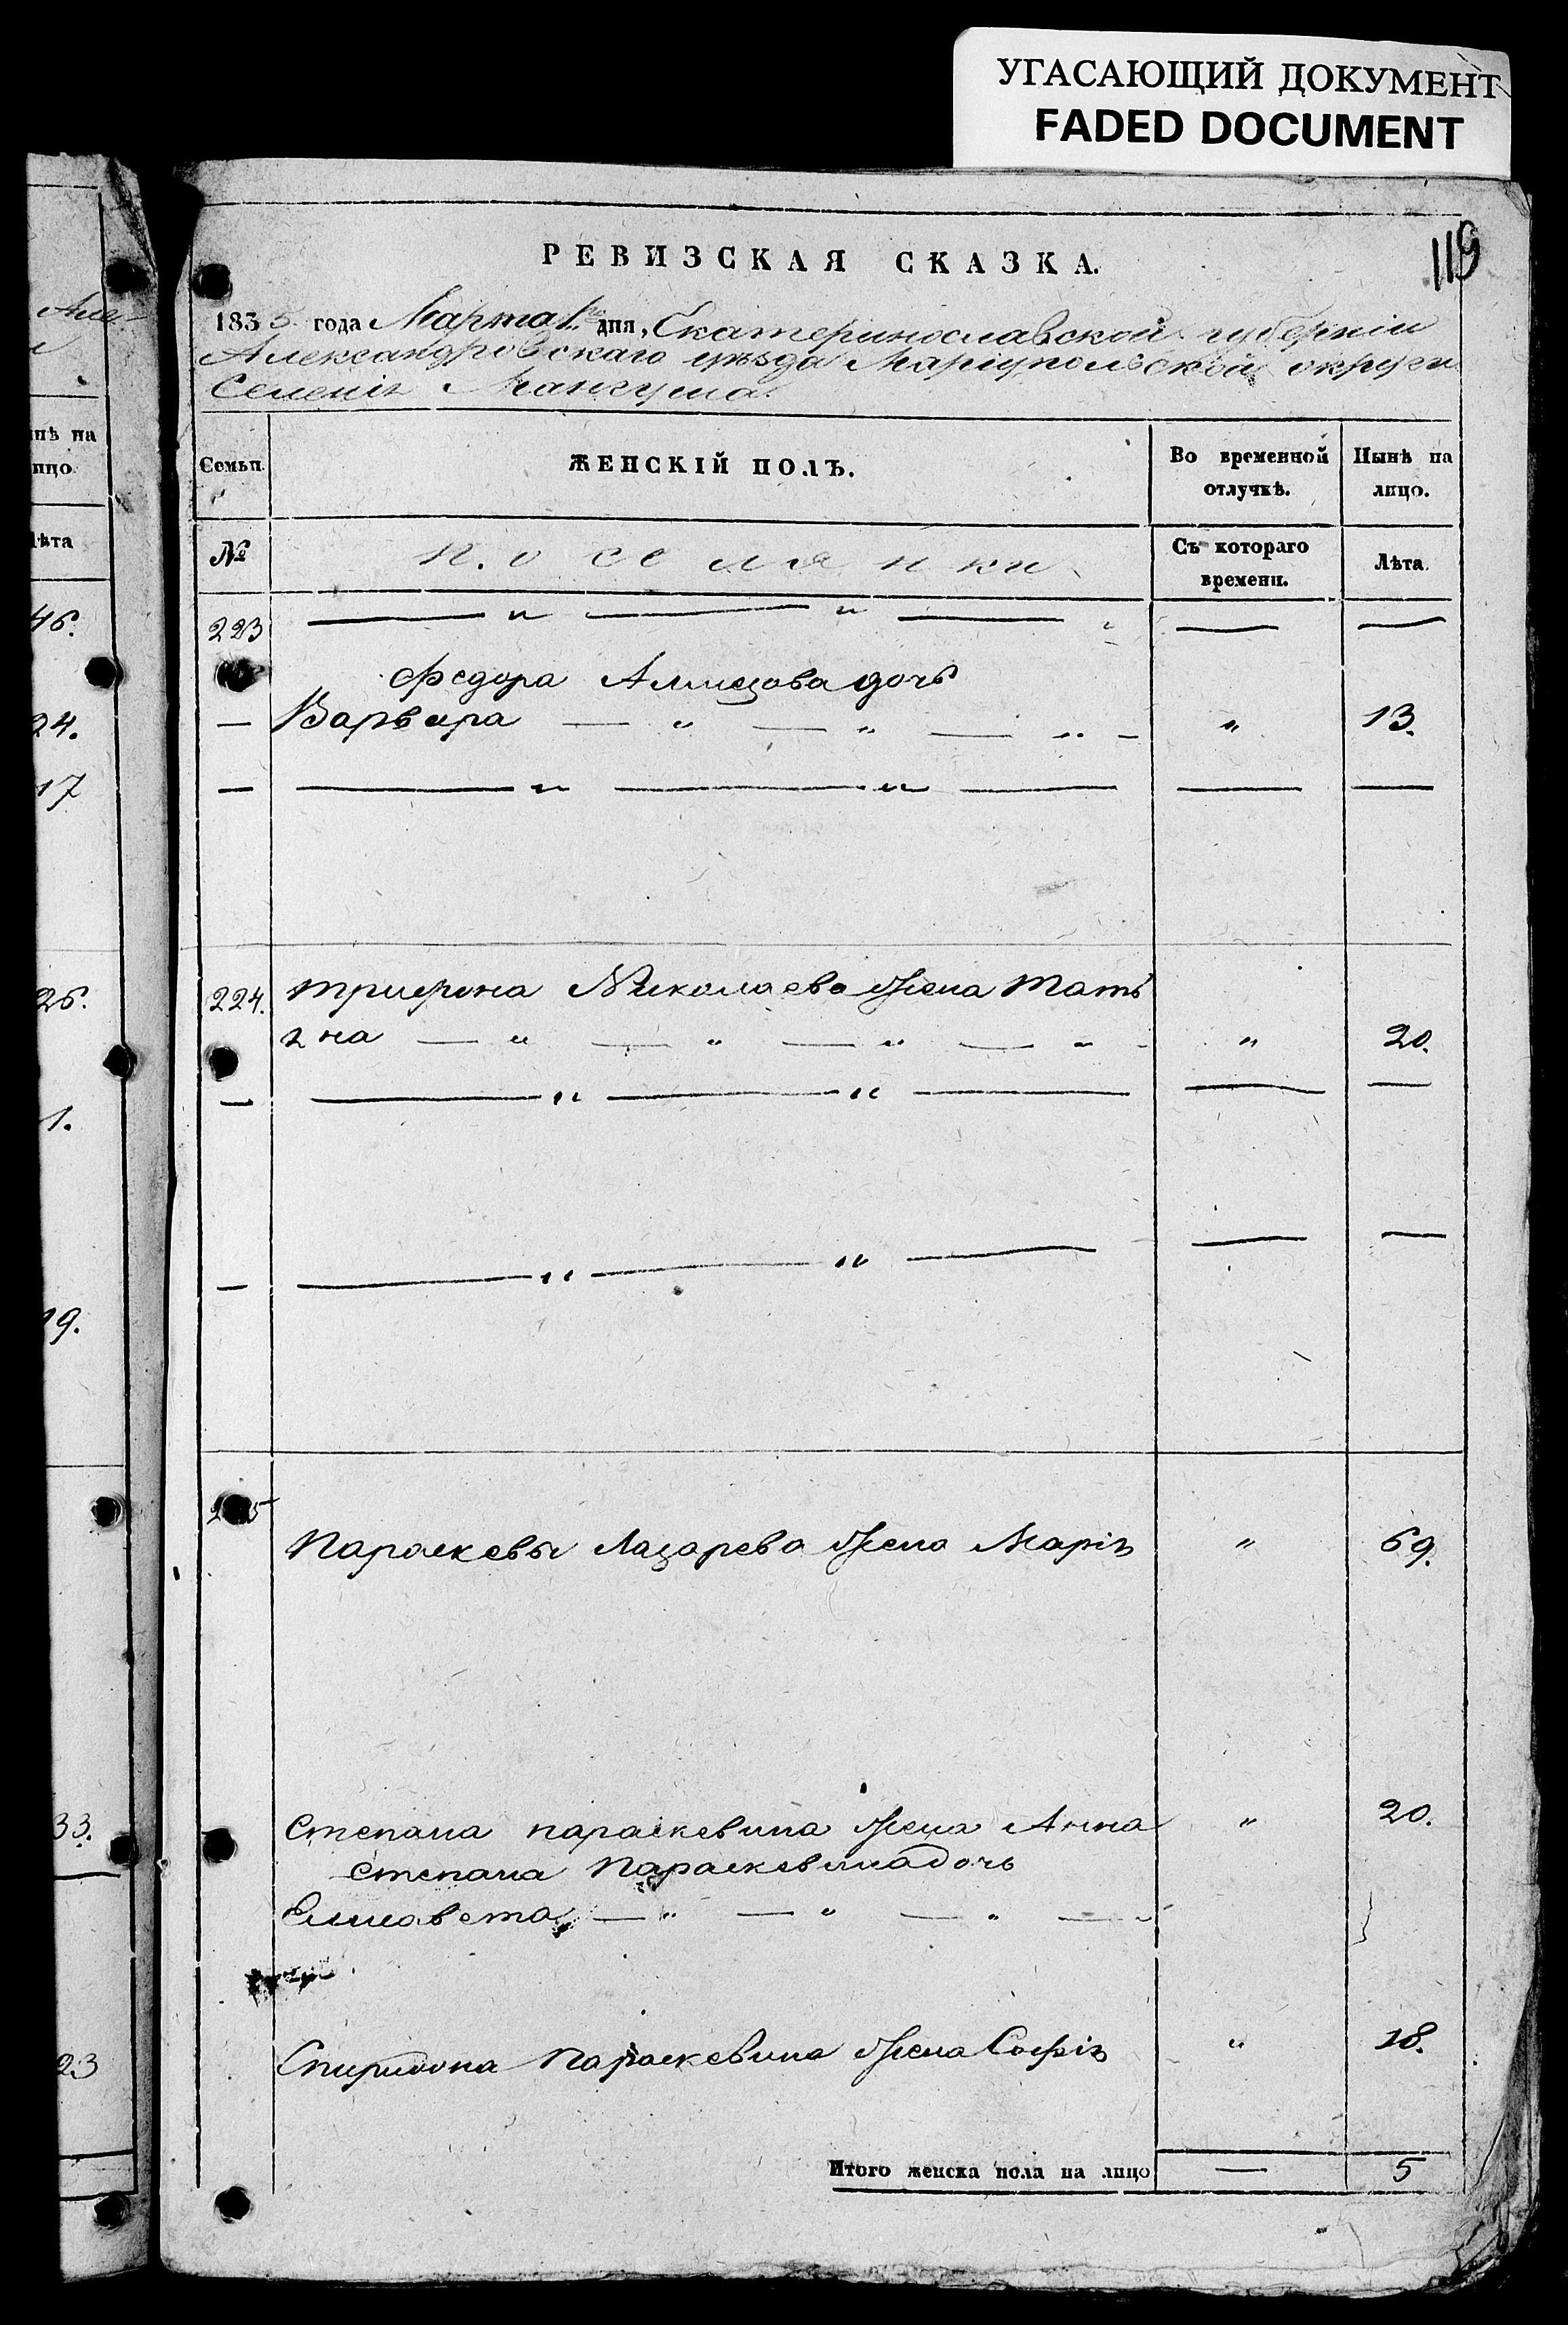 УГАСАЮЩИЙ ДОКУМЕНТ
FADED DOCUMENT
119
РЕВИЗСКАЯ СКАЗКА.
1835 года Марта 1го дня, Екатеринославской губерніи
Александровскаго уѣзда Маріупольской округи
Селенія Мангуша
Семьи
ЖЕНСКІЙ ПОЛЪ.
Во временной отлучкѣ.
Нынѣ на лицо.
№
поселянки
Съ котораго времени.
Лѣта.
223 — " — " — — —
Федора дочь
— Варвара — " — " — " — " 13.
— — " — " — — —
224. Трифона Николаева жена Тать
яна — " — " — " — " — " 20.
— — " — " — — —
— — " — " — — —
225
Параскевы Лазарева жена Марія " 69.
Степана Параскевина жена Анна " 20.
Степана Параскевина дочь
Елисавета — " — " — " —
Спиридона Параскевина жена Софія " 18.
Итого женска пола на лицо — 5
нѣ на
лицо
Лѣта
46.
24.
17
26.
1.
19.
33.
23